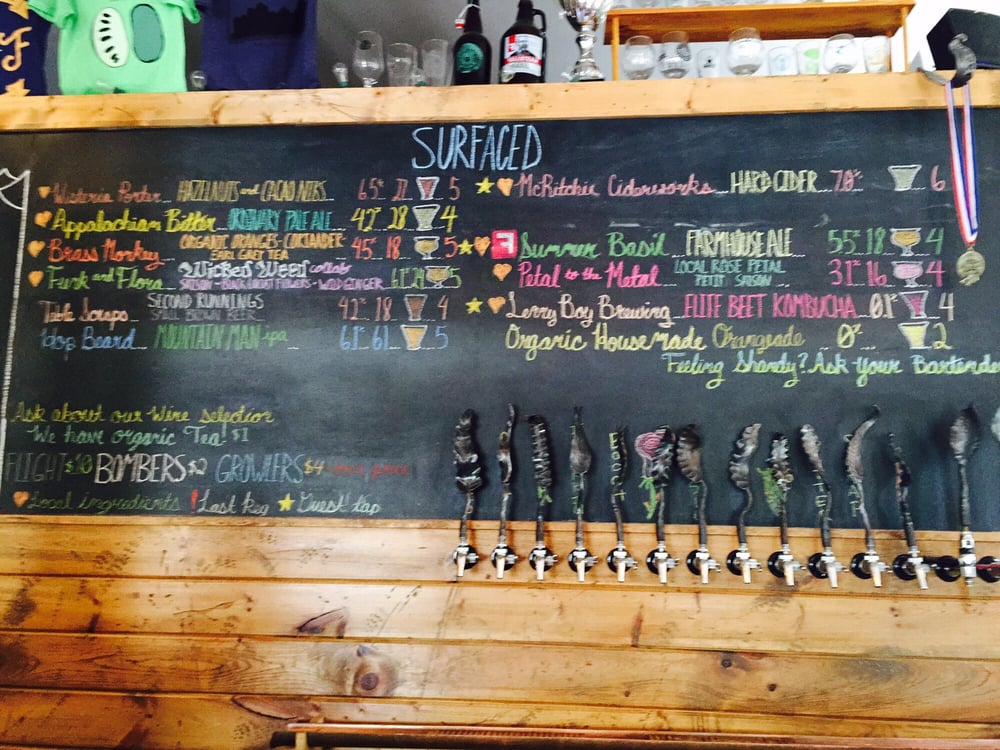 SURFACED
Wisteria Porter HAZELNUTS and CACAO NIBS 6.5% 21 5
Appalachian Bitter ORDINARY PALE ALE 4.2% 28 4
Brass Monkey ORGANIC ORANGES-CORIANDER
EARL GREY TEA 4.5% 18 5
Funk and Flora Wicked Weed collab
SAISON - BLACK LOCUST FLOWERS - WILD GINGER 5
Table Scraps SECOND RUNNINGS
SMALL BROWN BEER 4.2% 18 4
Hop Beard MOUNTAIN MAN ipa 6.1% 61 5
McRitchie Ciderworks HARD CIDER 7.0% 6
F Summer Basil FARMHOUSE ALE 5.5% 18 4
Petal to the Metal LOCAL ROSE PETAL
PETIT SAISON 3.1% 16 4
Lenny Boy Brewing ELITE BEET KOMBUCHA 0.1% 4
Organic Housemade Orangeade 0% 2
Feeling Shandy? Ask Your Bartender
Ask about our Wine selection
We have organic Tea! $1
FLIGHT $10 BOMBERS $2 GROWLERS $4
Local ingredients ! Last keg Guest tap
F